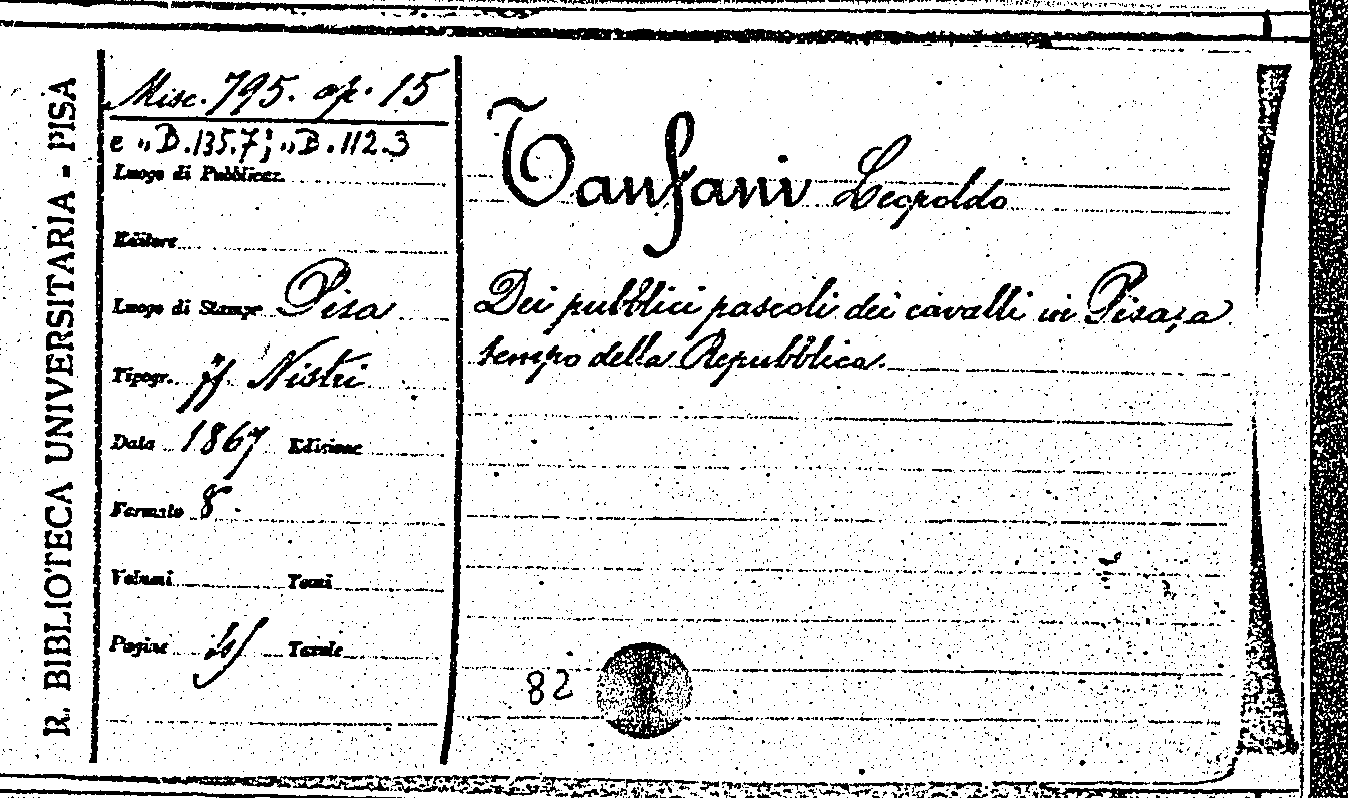 R. BIBLIOTECA UNIVERSITARIA - PISA
Misc. 795. op. 15
e „B.135.7; „B.112.3
Luogo di Pubblicaz.
Editore
Luogo di Stampa Pisa
Tipogr. ff. Nistri
Data 1867 Edizione
Formato 8.
Volumi Tomi
Pagine Tavole
Tanfani Leopoldo
Dei pubblici pascoli dei cavalli in Pisa, a
tempo della Repubblica.
82